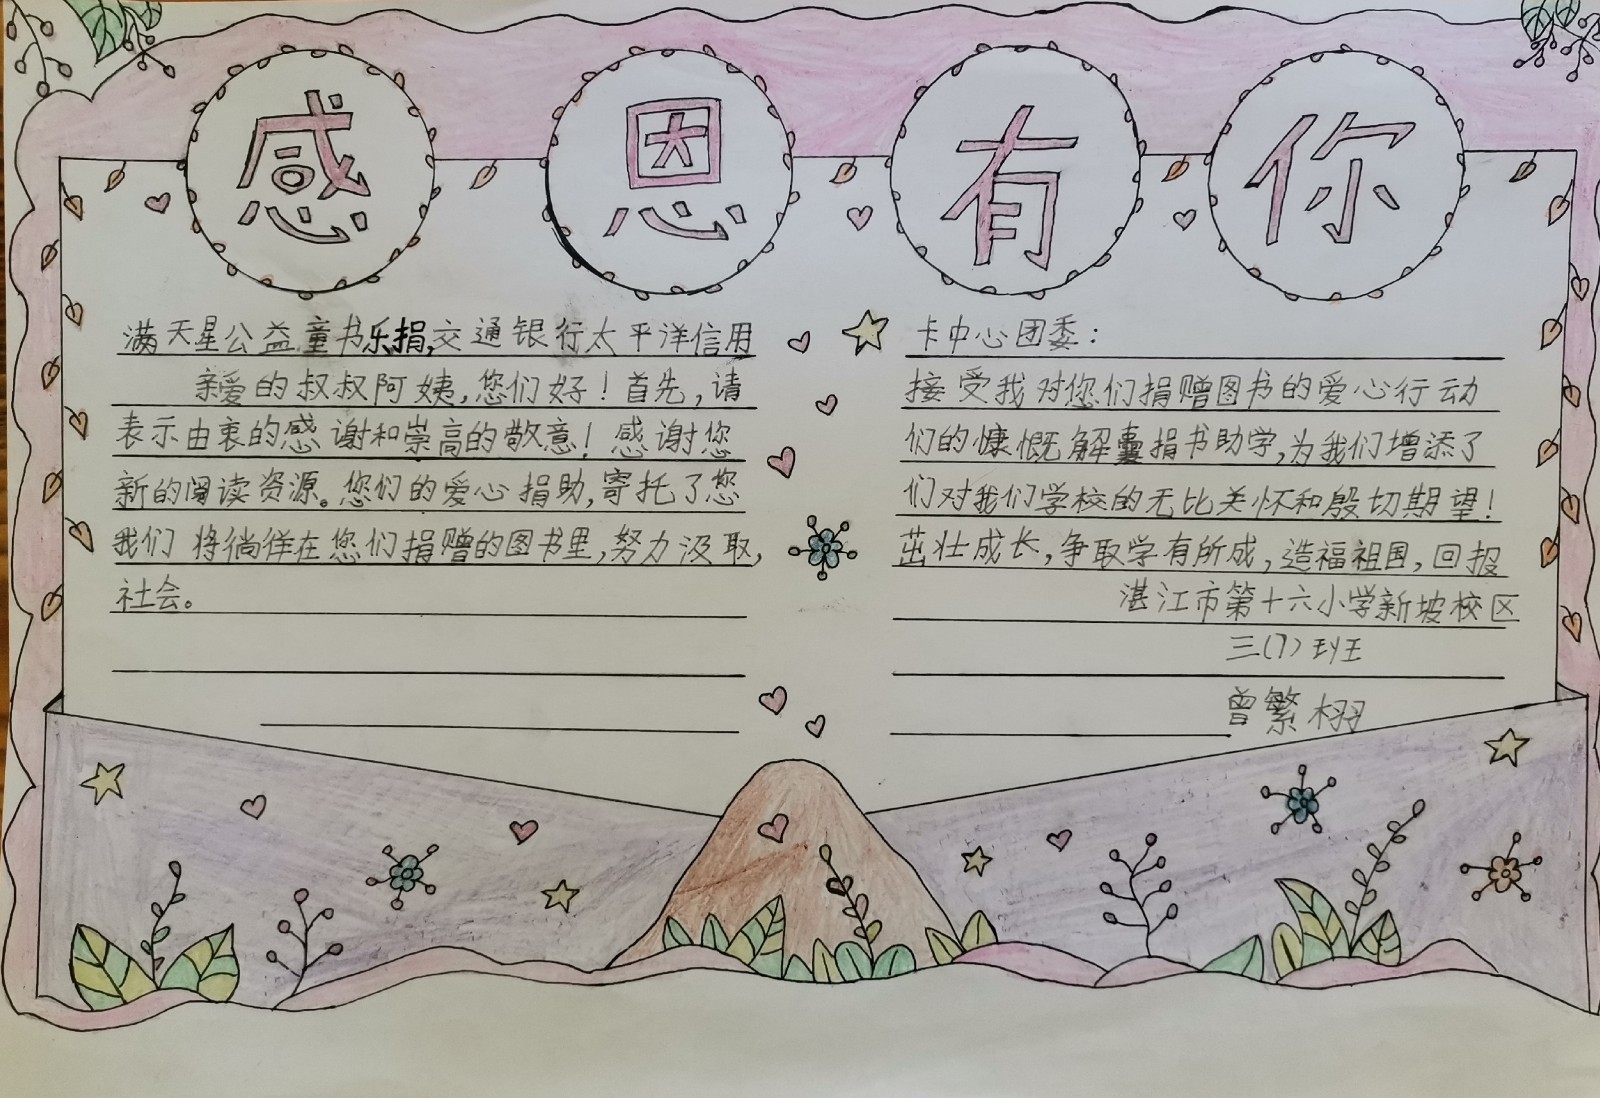 感恩有你
满天星公益童书乐捐,交通银行太平洋信用卡中心团委:
亲爱的叔叔阿姨,您们好!首先,请接受我对您们捐赠图书的爱心行动
表示由衷的感谢和崇高的敬意!感谢您们的慷慨解囊捐书助学,为我们增添了
新的阅读资源。您们的爱心捐助,寄托了您们对我们学校的无比关怀和殷切期望!
我们将徜徉在您们捐赠的图书里,努力汲取,茁壮成长,争取学有所成,造福祖国,回报
社会。
湛江市第十六小学新坡校区
三(7)班
曾繁栩